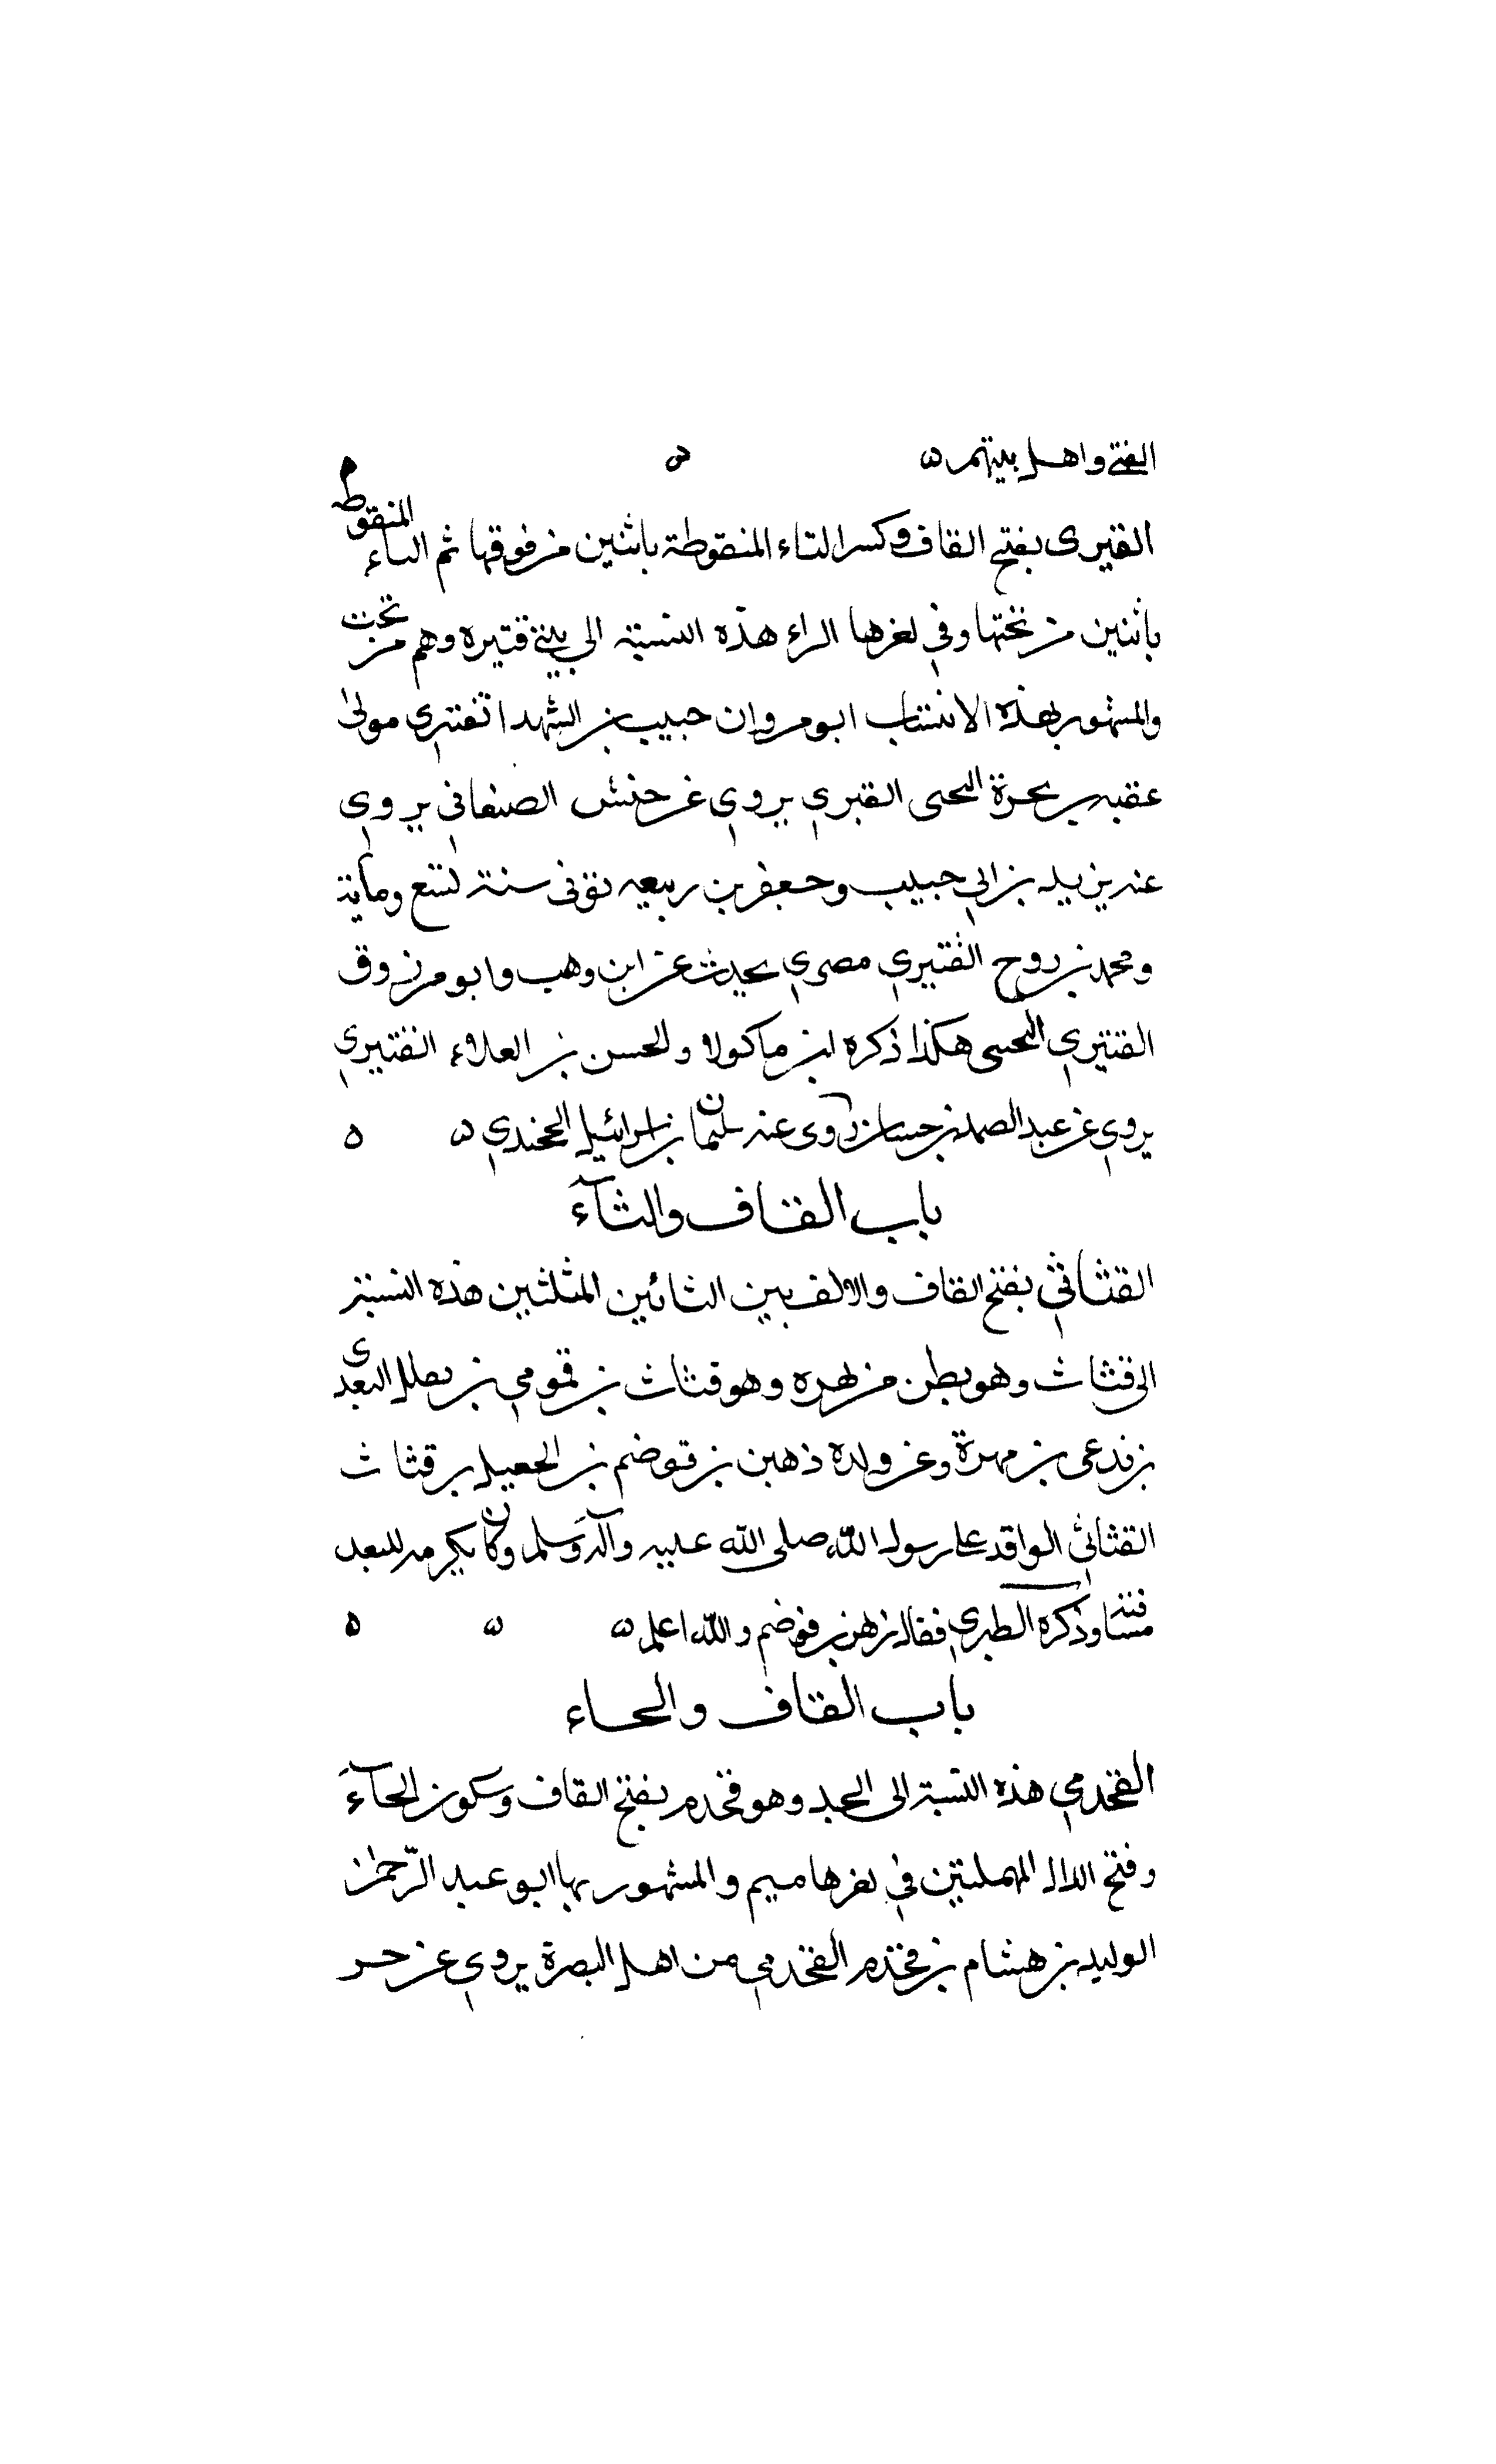 الفتح واهل بيتهم
القتيرى بفتح القاف وكسر التاء المنقوطة باثنين من فوقها ثم الياء المنقوطه
باثنين من تحتها وفي اخرها الراء هذه النسبة الى بني قتيرة وهم من تجيب
والمشهور بهذه الانتساب ابو مروان حبيب بن الشهد القتيري مولى
عقبه بن بحرة القتيري يروي عن حنش الصنعاني يروي
عنه يزيد بن ابي حبيب وجعفر بن ربيعه توفى سنة تسع ومائة
ومحمد بن روح القتيري مصري يحدث عن ابن وهب وابو مرزوق
القتيري هكذا ذكره ابن ماكولا والحسن بن العلاء القتيري
يروي عن عبد الصمد بن حسان روى عنه سليمان بن اسرائيل الخجندي
باب القاف والثآء
القثاثي بفتح القاف والالف بين الثائين المثلثين هذه النسبة
الى قثاث وهو بطن من مهره وهو قثاث بن قمومي بن
بن مهرة وعن ولده ذهبن بن قوضم بن الجعيل بن قثاث
القثاثي الوافد على رسول الله صلى الله عليه وآله وسلم وكان يكرمه لبعد
وذكره الطبري فقال زهن بن قوضم والله اعلم
باب القاف والحاء
القحدمي هذه النسبة الى الجد وهو قحدم بفتح القاف وسكون الحآء
وفتح الدال المهملتين في اخرها ميم والمشهور بها ابو عبد الرّحمن
الوليد بن هشام بن قحذم القحذمي من اهل البصرة يروي عن حر